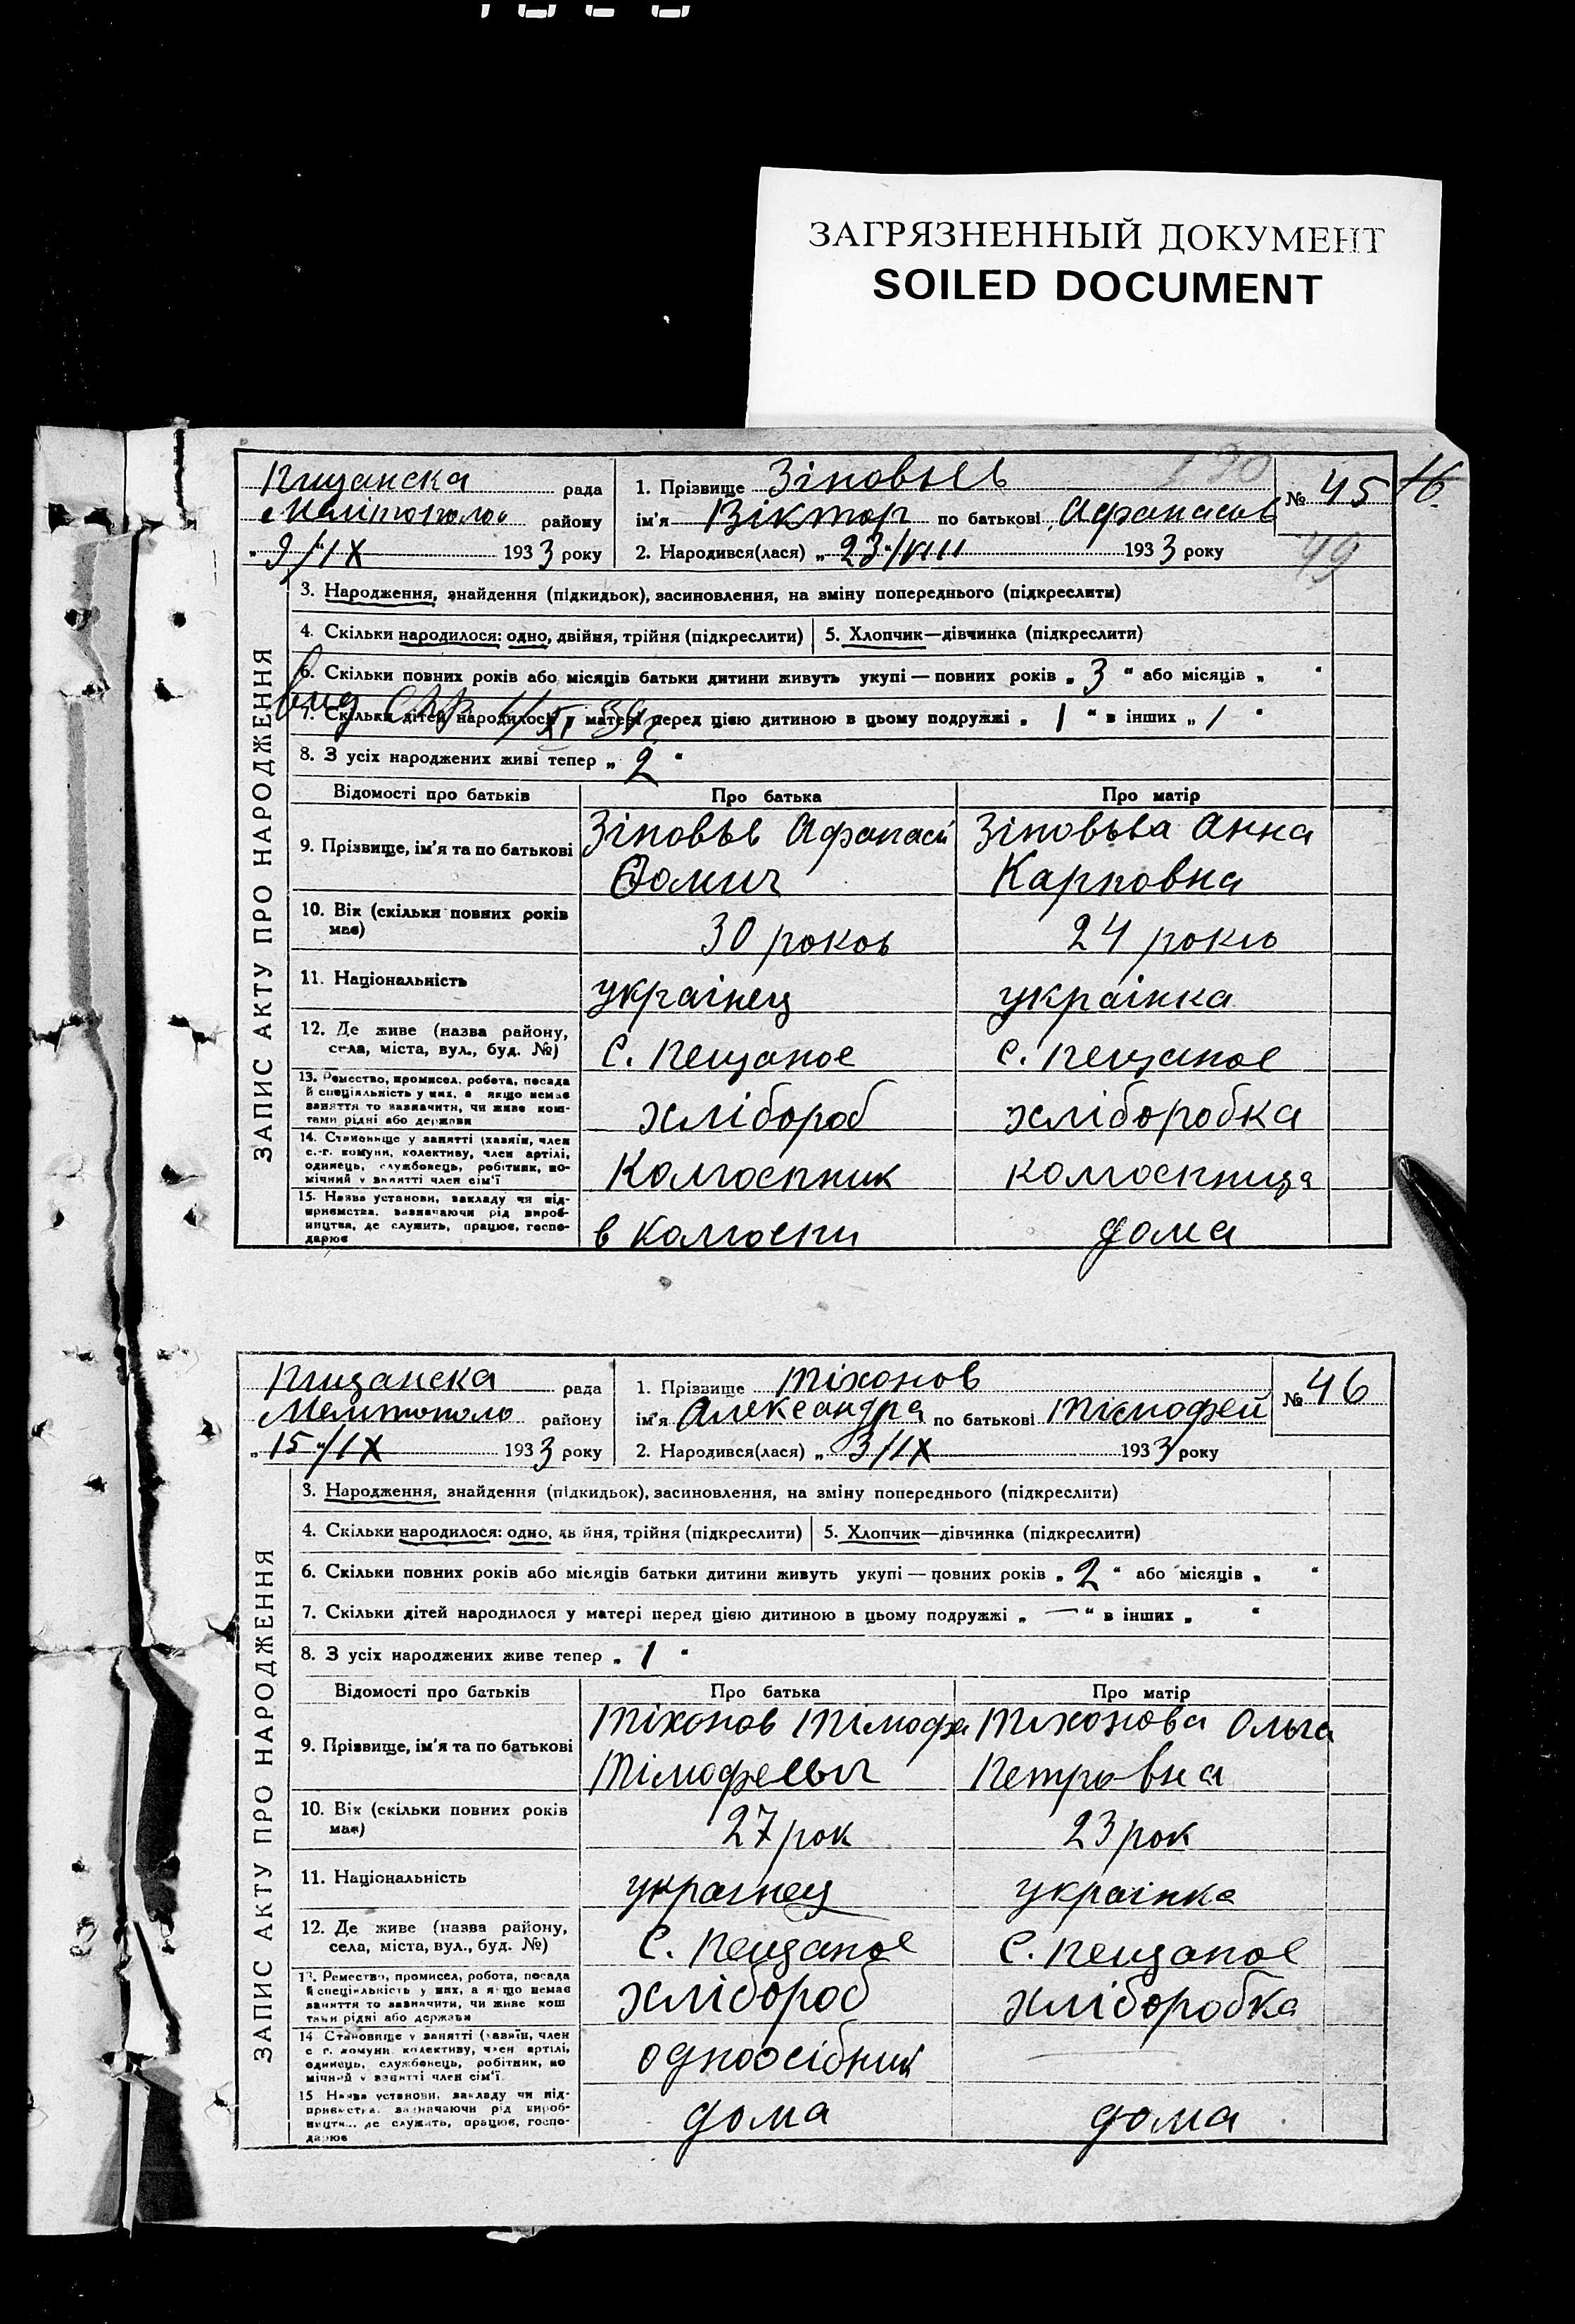 ЗАГРЯЗНЕННЫЙ ДОКУМЕНТ
SOILED DOCUMENT
ЗАПИС АКТУ ПРО НАРОДЖЕННЯ
Пищанска рада
Мелітополь району
„ 9/IX 1933 року
1. Прізвище Зіновьев
ім'я Віктор по батькові Афанасов
2. Народився(лася) „ 23/VIII 1933 року
№ 45
16.
130
49
3. Народження, знайдення (підкидьок), засиновлення, на зміну попереднього (підкреслити)
4. Скільки народилося: одно, двійня, трійня (підкреслити) 5. Хлопчик—дівчинка (підкреслити)
6. Скільки повних років або місяців батьки дитини живуть укупі — повних років „ 3 “ або місяців „ “
7. Скільки дітей народилося у матері перед цією дитиною в цьому подружжі „ 1 “ в інших „ 1 “
8. З усіх народжених живі тепер „ 2 “
Відомості про батьків Про батька Про матір
9. Прізвище, ім'я та по батькові
Зіновьев Афанасий
Фомич
Зіновьева Анна
Карповна
10. Вік (скільки повних років
має)
30 роков 24 роков
11. Національність українец українка
12. Де живе (назва району,
села, міста, вул., буд. №)
с. Пещаное с. Пещаное
13. Ремество, промисел, робота, посада
й спеціяльність у них, а якщо немає
заняття то зазначити, чи живе кош-
тами рідні або держави
хлібороб хліборобка
14. Становище у занятті (хазяїн, член
с.-г. комуни, колективу, член артілі,
одинець, службовець, робітник, по-
мічний у занятті член сім'ї
Колгоспник колгоспница
15. Назва установи, закладу чи під-
приємства, зазначаючи рід вироб-
ництва, де служить, працює, госпо-
дарює
в колгоспи дома
ЗАПИС АКТУ ПРО НАРОДЖЕННЯ
Пищанска рада
Мелитополь району
„ 15/IX 1933 року
1. Прізвище Тіхонов
ім'я Александра по батькові Тімофей
2. Народився(лася) „ 3/IX 1933 року
№ 46
3. Народження, знайдення (підкидьок), засиновлення, на зміну попереднього (підкреслити)
4. Скільки народилося: одно, двійня, трійня (підкреслити) 5. Хлопчик—дівчинка (підкреслити)
6. Скільки повних років або місяців батьки дитини живуть укупі — повних років „ 2 “ або місяців „ “
7. Скільки дітей народилося у матері перед цією дитиною в цьому подружжі „ — “ в інших „ “
8. З усіх народжених живе тепер „ 1 “
Відомості про батьків Про батька Про матір
9. Прізвище, ім'я та по батькові
Тіхонов Тімофа
Тімофеевич
Тихонова Ольга
Петровна
10. Вік (скільки повних років
має)
27 рок 23 рок
11. Національність українец українка
12. Де живе (назва району,
села, міста, вул., буд. №)
С. Пещаное С. Пещаное
13. Ремество, промисел, робота, посада
й спеціяльність у них, а якщо немає
заняття то зазначити, чи живе кош
тами рідні або держави
хлібороб хліборобка
14 Становище у занятті (хазяїн, член
с г. комуни, колективу, член артілі,
одинець, службовець, робітник, по
мічний у занятті член сім'ї
одноосібник —
15 Назва установи, закладу чи під-
приємства, зазначаючи рід вироб-
ництва, де служить, працює, госпо-
дарює
дома дома